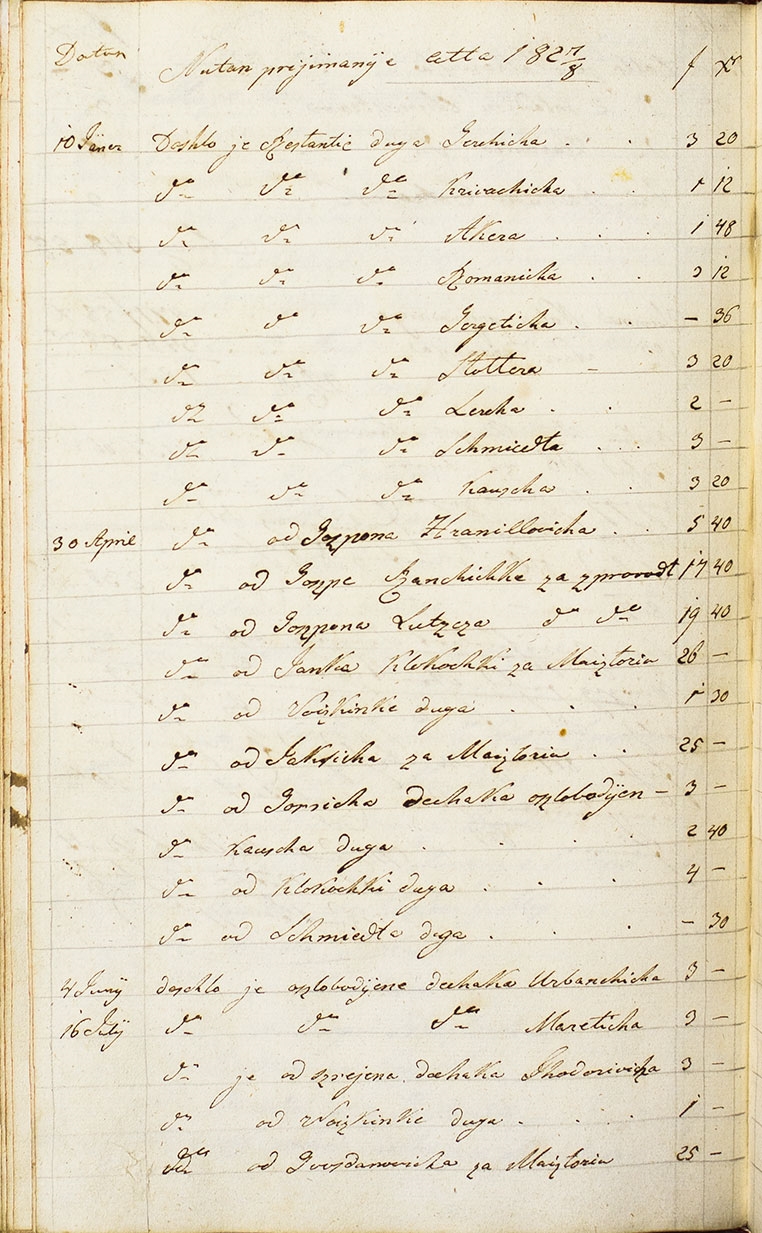 Datum Nutar prijimanije letta 1827/8 f xr
10 Jäner Doshlo je Restantie duga Gerchicha . . 3 20
do do do Krivachicha . . 1 12
do do do Akera . . . 1 48
do do do Romanicha . . 3 12
do do do Gergeticha . . – 36
do do do Stottera – 3 20
do do do Lercha . . 2 –
do do do Schmiedta . . . 3 –
do do do Kauscha . . 3 20
30 April do od Gozpona Hranillovicha . . 5 40
do od Gozpe Ranchichke za zprovodt 17 40
do od Gozpona Lutzcza do do 19 40
do od Janka Klokochki za Maiztoriu 26 –
do od Voizkinke duga . . . 1 30
do od Jakticha za Maiztoriu . . 25 –
do od Gorsicha dechaka ozlobodjen – 3 –
do Kauscha duga . . . . 2 40
do od Klokochki duga . . . 4 –
do od Schmiedta duga . . . – 30
4 Juny doschlo je ozlobodjene dechaka Urbanchicha 3 –
16 July do do do Mareticha 3 –
do je od zrejena dechaka Thodorovicha 3 –
do od Voizkinke duga . . . . 1 –
do od Gvozdanovicha za Maiztoriu 25 –